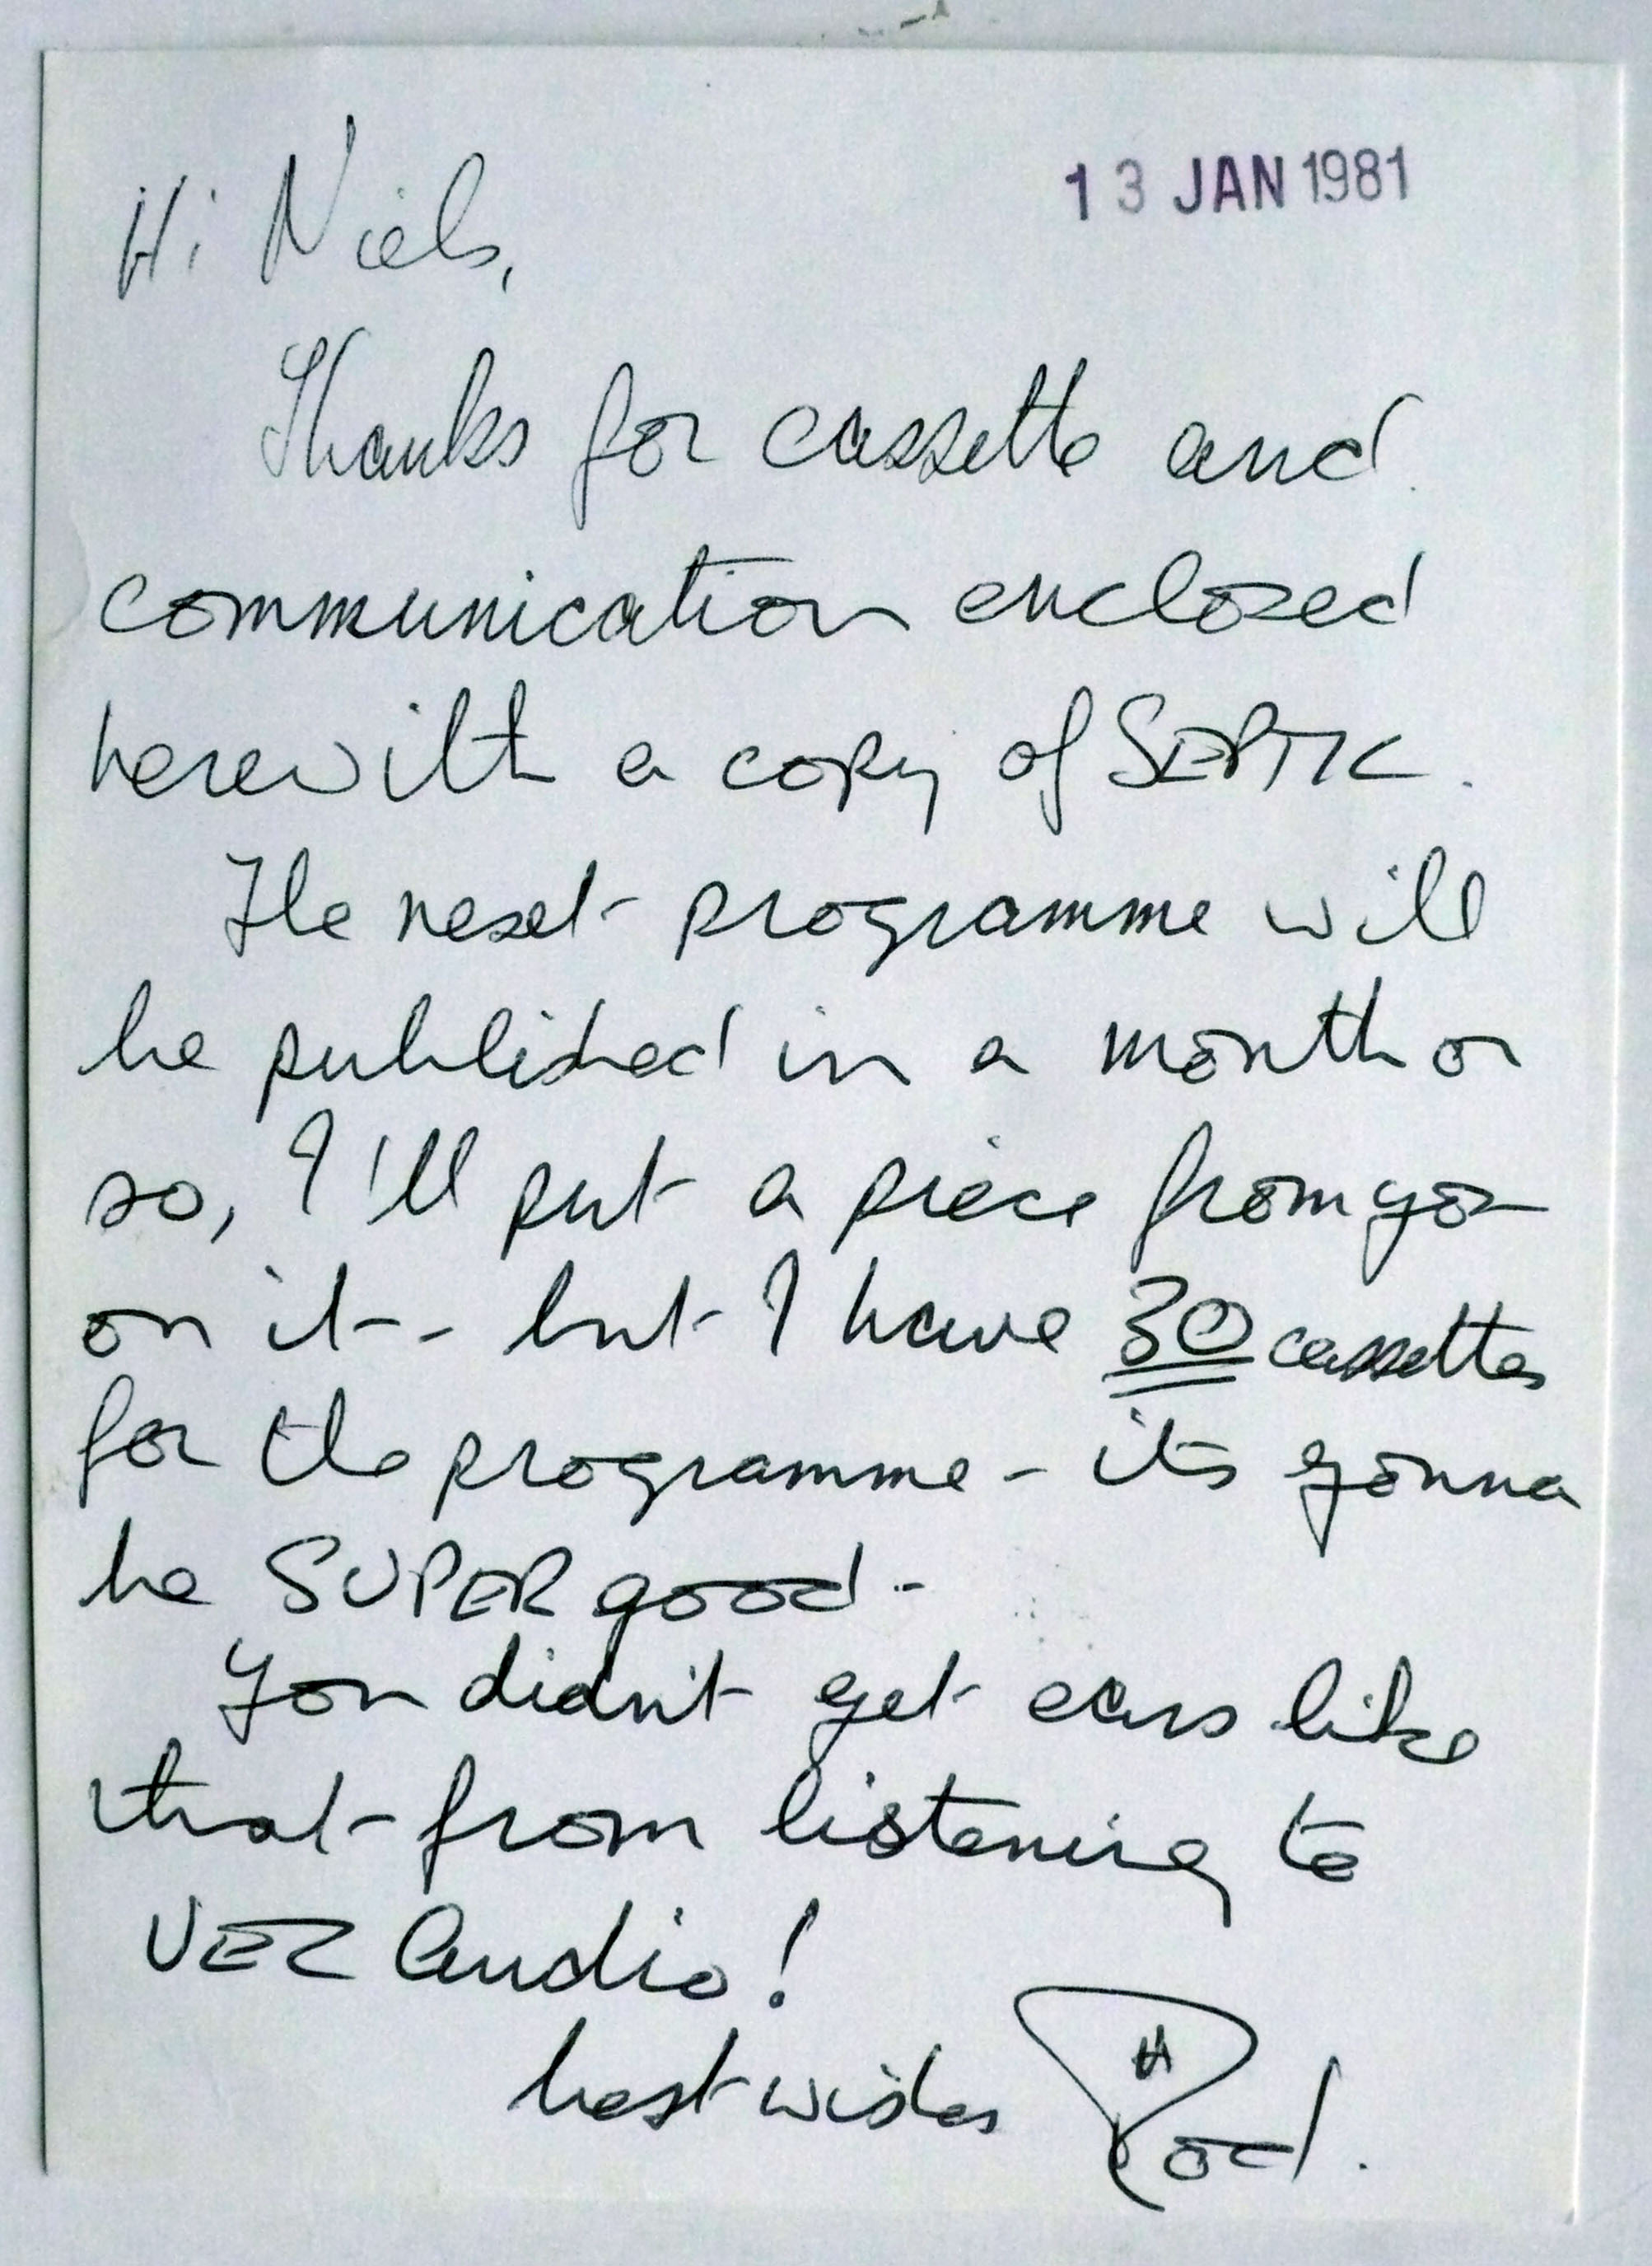 Hi Niels,
13 JAN 1981
Thanks for cassette and
communication enclosed
herewith a copy of SEPTIC.
The next programme will
be published in a month or
so, I'll put a piece from you
on it - but I have 30 cassettes
for the programme - its gonna
be SUPER good -
You didn't get ears like
that from listening to
VEZ Audio!
best wishes Rod.